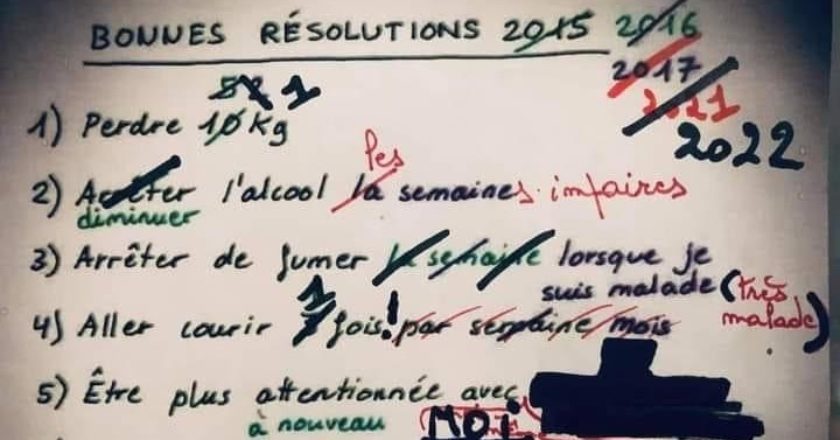 BONNES RÉSOLUTIONS 2015 2016
2017
2021
2022
1
1) Perdre 10 kg
les
2) Arrêter l'alcool la semaines impaires
diminuer
3) Arrêter de fumer la semaine lorsque je
suis malade (très
malade)
1
4) Aller courir fois! par semaine mois
5) Être plus attentionnée avec
à nouveau MOI